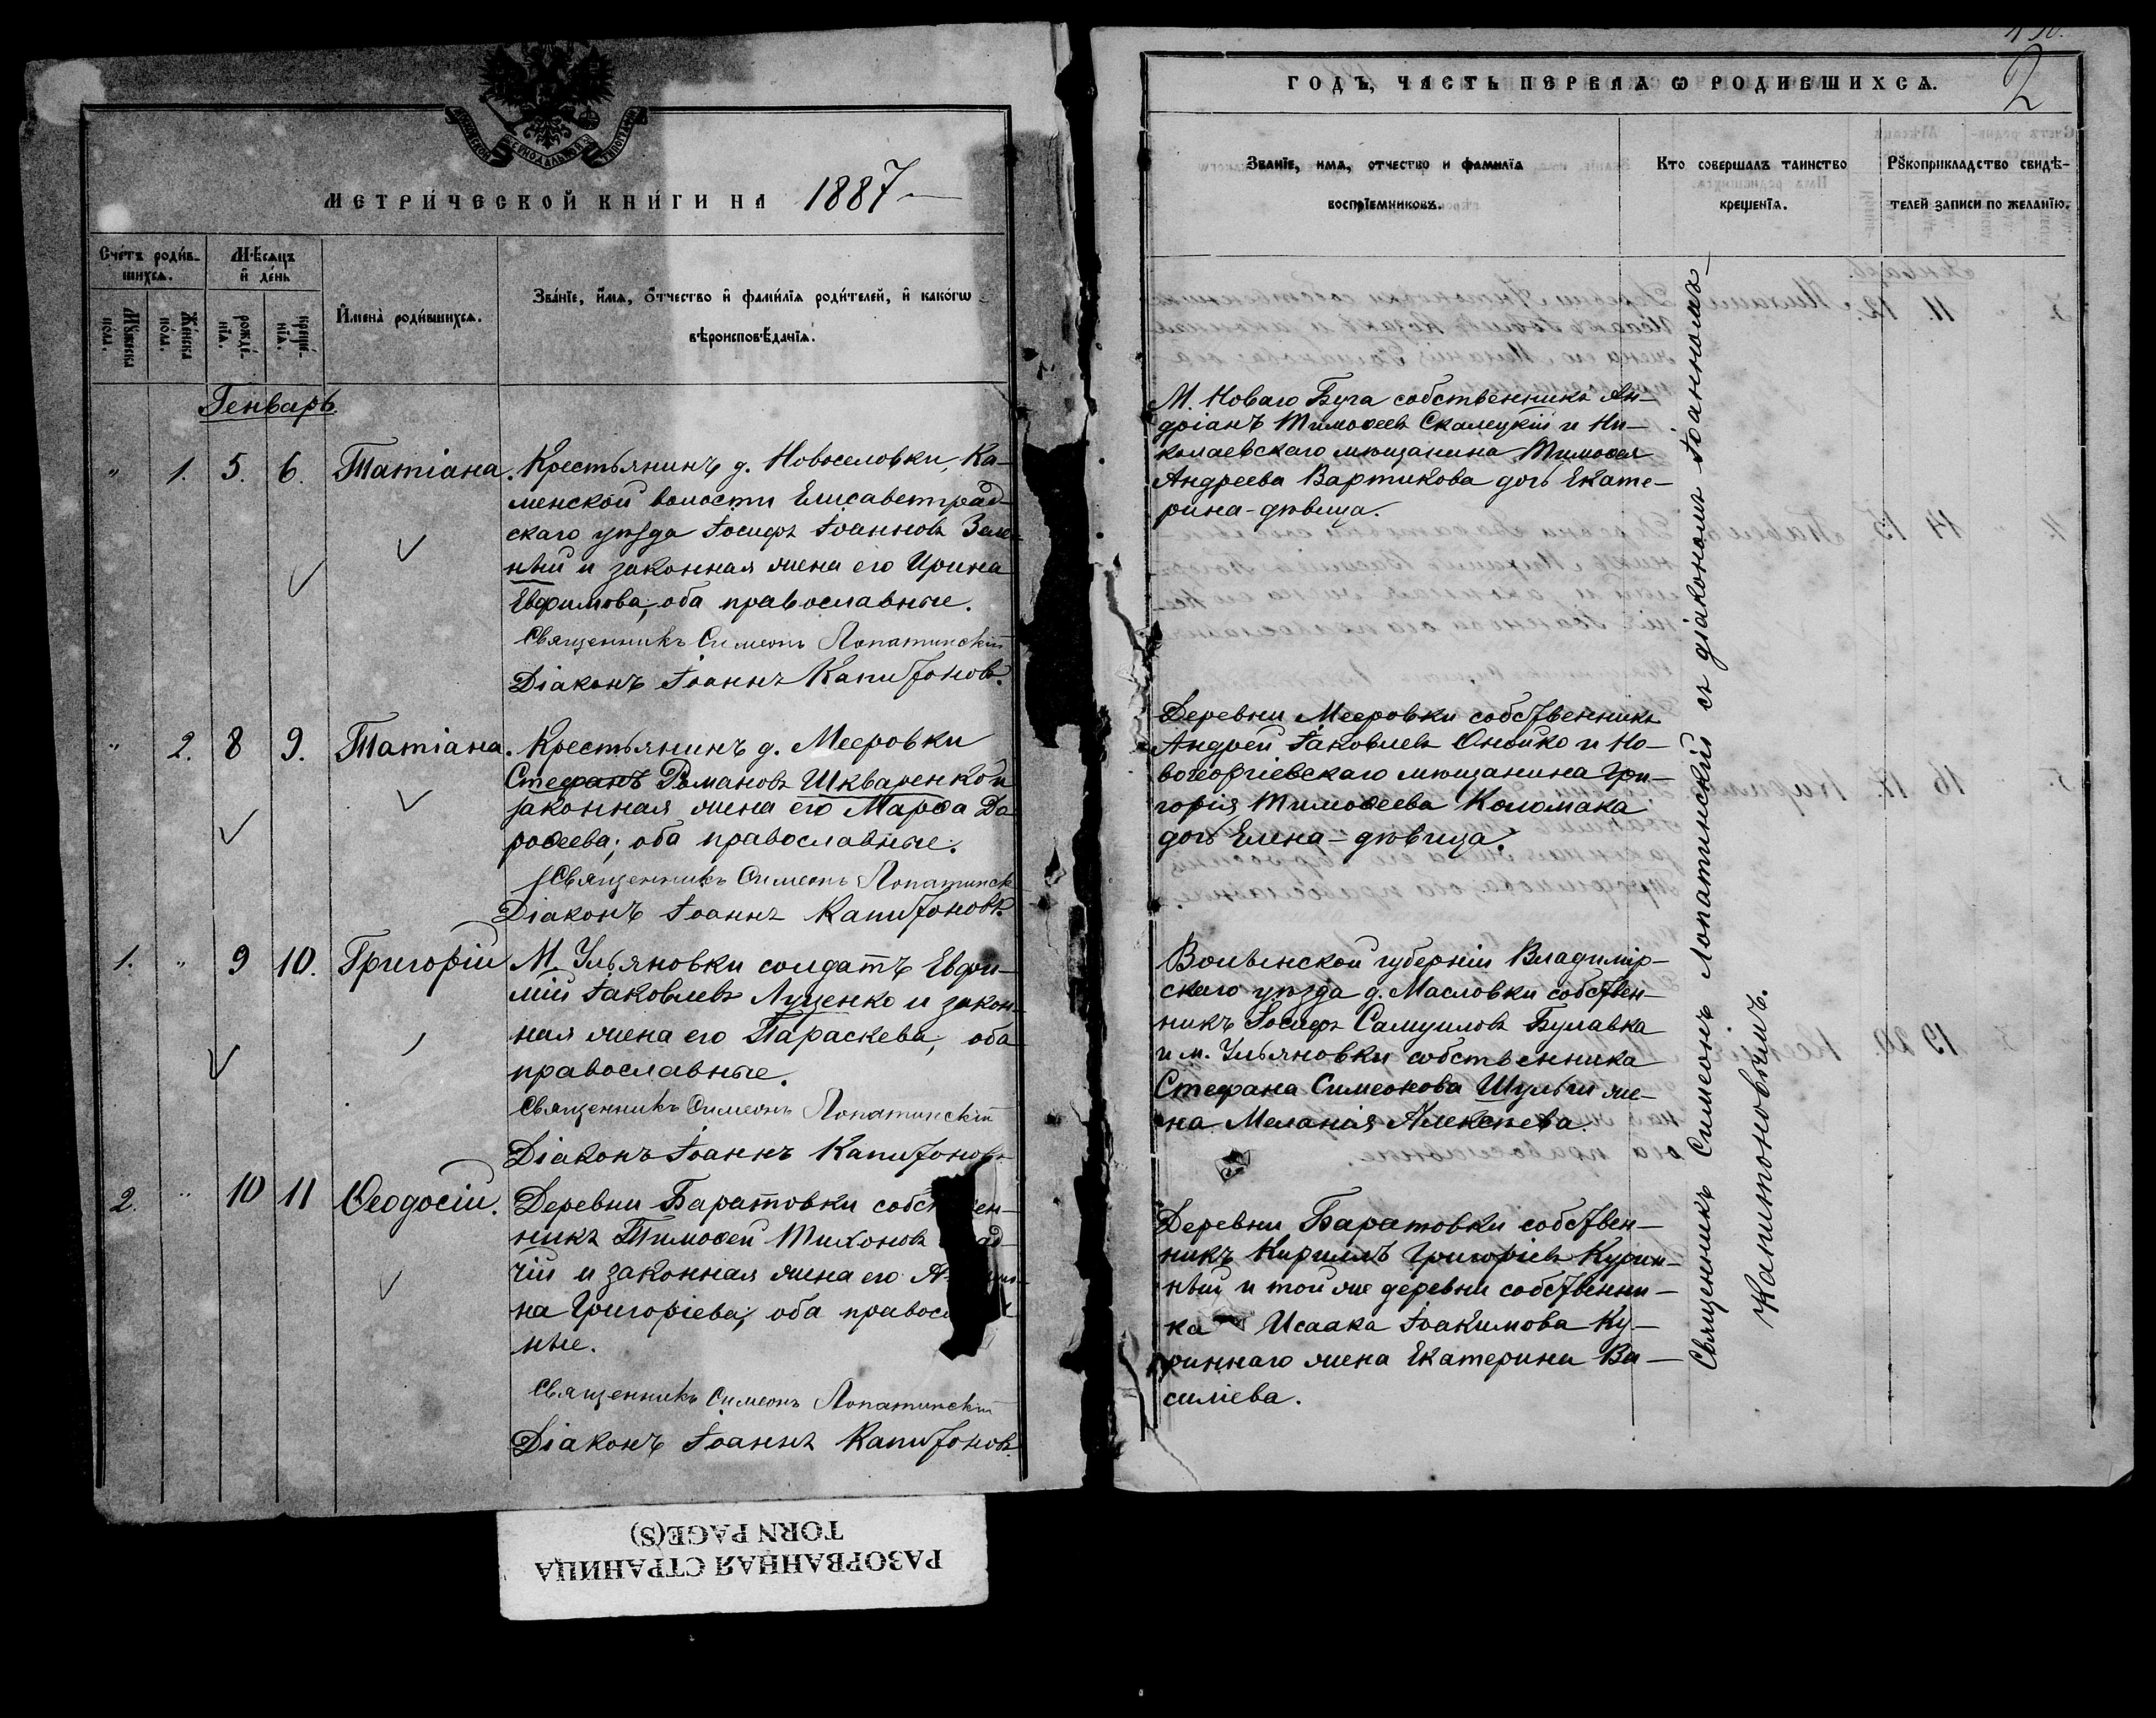 МОСКОВСКОЙ СѴНОДАЛЬНОЙ ТИПОГРАФІИ
МЕТРИ́ЧЕСКОЙ КНИ́ГИ НА 1887
Сче́тъ роди́в-
шихсѧ.
Мѣ́сяцъ
и҆ де́нь
Мꙋ́жеска
по́ла.
Же́нска
по́ла.
рожде́-
нїѧ.
креще́-
нїѧ.
И҆мена̀ роди́вшихсѧ.
Зва́нїе, и҆́мѧ, ѻ҆́тчество и҆ фамѝлїѧ роди́телей, и҆ како́гѡ
вѣроисповѣ́данїѧ.
Генварь.
" 1. 5. 6. Татіана. Крестьянинъ д. Новоселовки, Ка-
менской волости Елисаветград-
скаго уѣзда Іосифъ Іоанновъ Зеле-
ный и законная жена его Ирина
Евфимова, оба православные.
Священникъ Симеонъ Лопатинскій
Діаконъ Іоаннъ Капитоновъ.
" 2. 8 9. Татіана. Крестьянинъ д. Мееровки
Стефанъ Романовъ Шкваренко и
законная жена его Марѳа До
роѳеева; оба православные.
Священникъ Симеонъ Лопатинск
Діаконъ Іоаннъ Капитоновъ.
1. " 9 10. Григорій М. Ульяновки солдатъ Евфи-
мій Іаковлевъ Луценко и закон-
ная жена его Параскева, оба
православные.
Священникъ Симеонъ Лопатинскій
Діаконъ Іоаннъ Капитоновъ
2. " 10 11 Ѳеодосій. Деревни Баратовки собст ен-
никъ Тимоѳей Тихоновъ ад-
чій и законная жена его
на Григоріева, оба правос
ные.
Священникъ Симеонъ Лопатинскій
Діаконъ Іоаннъ Капитоновъ.
2
ГОДЪ, ЧАСТЬ ПЕРВАѦ Ѡ РОДИВШИХСѦ.
Званїе, имѧ, отчество и фамилїѧ
воспрїемниковъ.
Кто совершалъ таинство
крещенїѧ.
Рꙋкоприкладство свидѣ-
телей записи по желанїю.
М. Новаго Буга собственникъ Ан-
дріанъ Тимоѳеевъ Скалецкій и Ни-
колаевскаго мѣщанина Тимоѳея
Андреева Вартикова дочь Екате-
рина-дѣвица.
Деревни Мееровки собственникъ
Андрей Іаковлевъ Онойко и Но-
вогеоргіевскаго мѣщанина Гри-
горія Тимоѳеева Коломака
дочь Елена-дѣвица.
Волынской губерніи Владимір-
скаго уѣзда д. Масловки собствен-
никъ Іосифъ Самуиловъ Булавка
и м. Ульяновки собственника
Стефана Симеонова Шульги же-
на Меланія Алексѣева.
Деревни Баратовки собствен-
никъ Кириллъ Григоріевъ Курин-
ный и той же деревни собственни-
ка Исаака Іоакимова Ку-
риннаго жена Екатерина Ва-
силіева.
Священникъ Симеонъ Лопатинскій съ діакономъ Іоанномъ
Капитоновымъ.
РАЗОРВАННАЯ СТРАНИЦА
TORN PAGE(S)